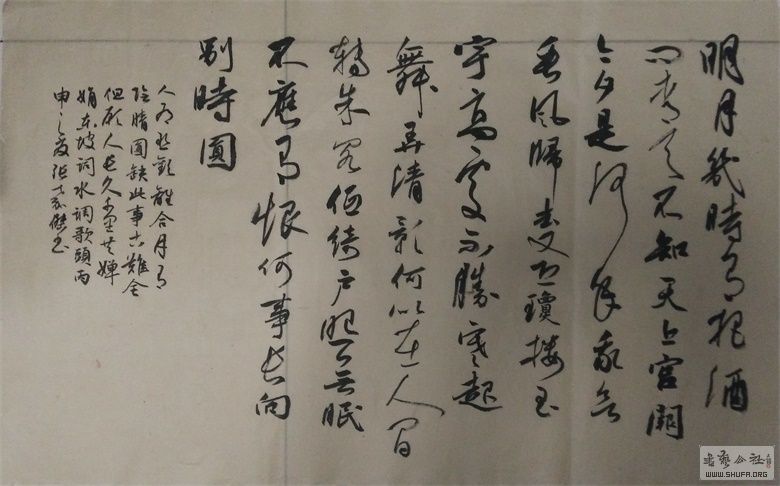 明月幾時有把酒
问青天不知天上宫闕
今夕是何年我欲
乘风歸去又恐瓊楼玉
宇高處不勝寒起
舞弄清影何似在人间
轉朱阁低綺户照无眠
不應有恨何事长向
别時圓
人有悲歡離合月有
陰晴圓缺此事古難全
但願人长久千里共婵
娟东坡词水调歌頭丙
申之夏张家傑书
書藝公社
WWW.SHUFA.ORG